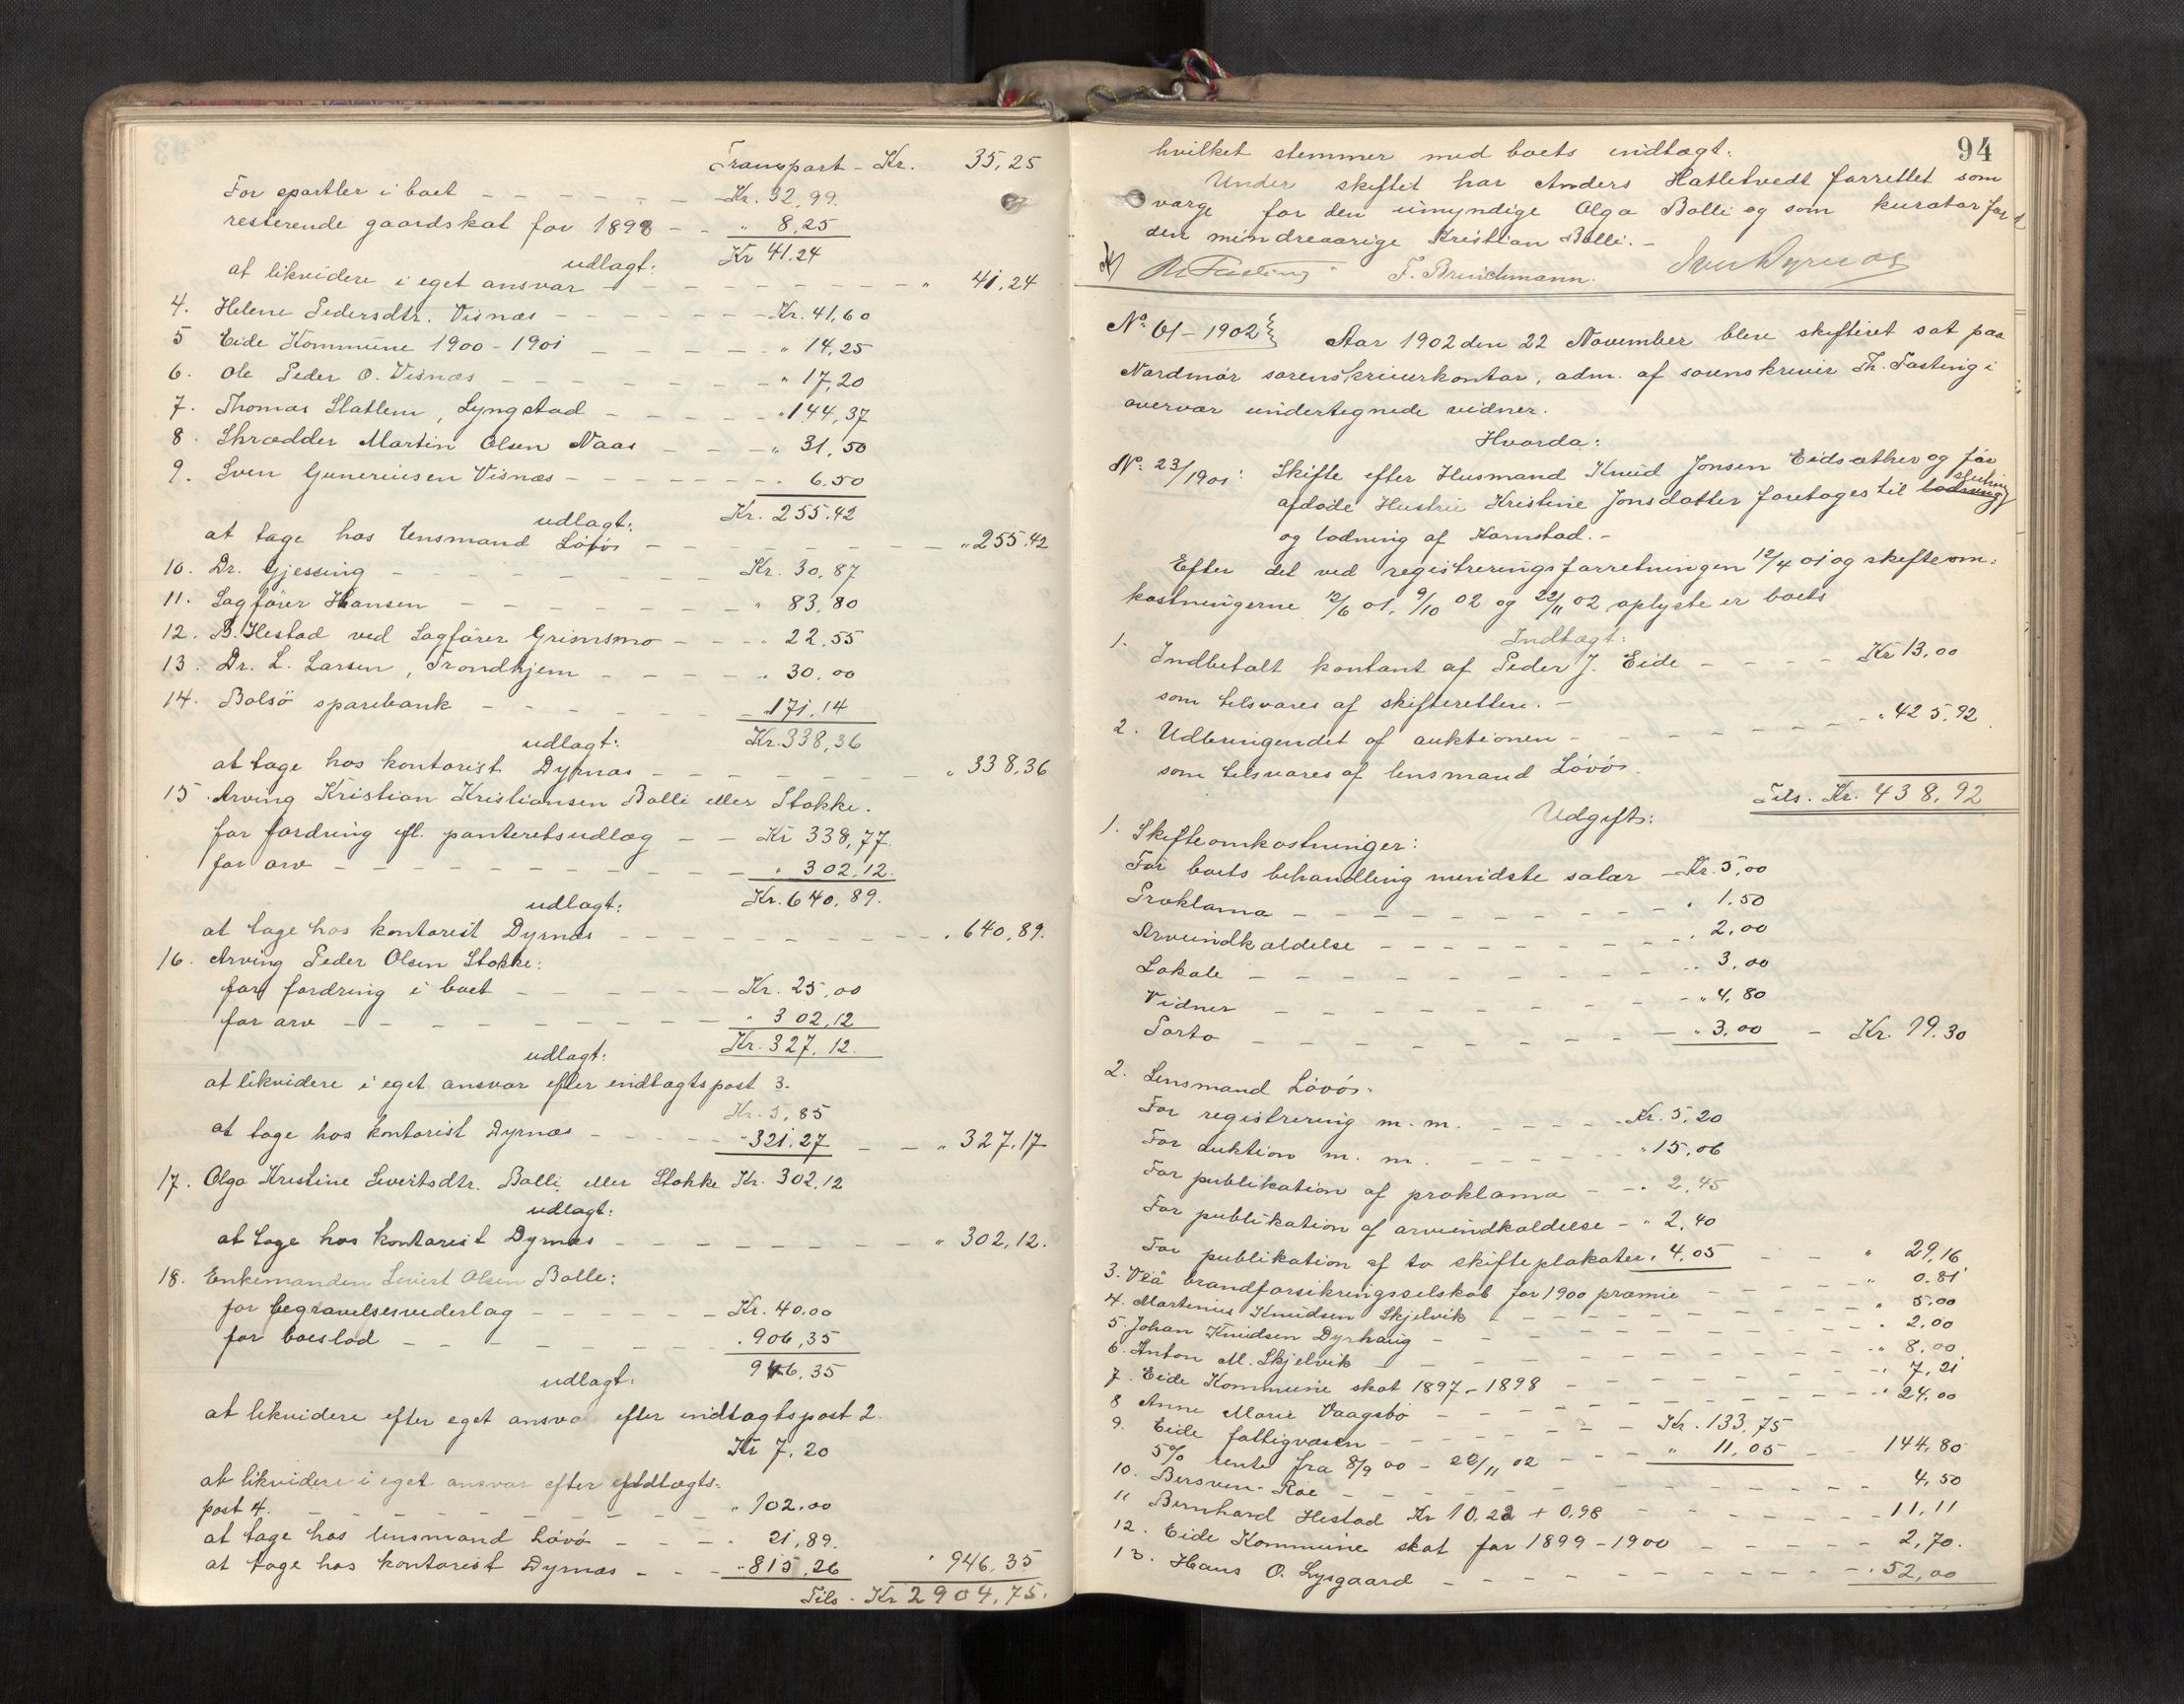 Transport - Kr. 35,25
For sportler i boet - - - - - - Kr. 32,99.
resterende gaardskat for 1898 - - " 8,25
Kr 41.24
udlagt:
at likvidere i eget ansvar - - - - - - - - " 41,24
4. Helene Pedersdtr. Visnæs - - - - - - Kr. 41,60
5 Eide Kommune 1900-1901 - - - - - " 14,25
6. Ole Peder O. Visnæs - - - - - - - " 17,20
7. Thomas Slatlem, Lyngstad - - - - - " 144,37
8. Skrædder Martin Olsen Naas - - - " 31,50
9. Sven Guneriusen Visnæs - - - - - - - 6.50
Kr. 255.42
udlagt:
at tage hos lensmand Lövös - - - - - - - " 255.42
10. Dr. Gjessing - - - - - - - - Kr. 30,87
11. Sagförer Hansen - - - - - - - " 83,80
12. B. Hestad ved Sagförer Grimsmo - - - " 22,55
13. Dr. L. Larsen, Trondhjem - - - - - " 30,00
14. Bolsö sparebank - - - - - - - " 171,14
Kr. 338,36
udlagt:
at tage hos kontorist Dyrnæs - - - - - - - " 338,36
15. Arving Kristian Kristiansen Bolli eller Stokke.
for fordring efl. panteretsudlæg - - Kr 338,77.
for arv - - - - - - - - - - " 302,12.
Kr. 640,89.
udlagt:
at tage hos kontorist Dyrnæs - - - - - - - - - " 640,89.
16. Arving Peder Olsen Stokke:
for fordring i boet - - - - - - Kr. 25,00
for arv - - - - - - - - - " 302,12
Kr. 327,12.
udlagt:
at likvidere i eget ansvar efter indtægtspost 3.
Kr. 5,85
at tage hos kontorist Dyrnæs - - - - - " 321.27 - - " 327,17
17. Olga Kristine Sivertsdtr. Bolli eller Stokke Kr. 302,12
udlagt:
at tage hos kontorist Dyrnæs - - - - - - - - " 302,12.
18. Enkemanden Sivert Olsen Bolle:
for begravelsesvederlag - - - - - - Kr. 40.00
for boeslod - - - - - - - - - " 906,35
946,35
udlagt:
at likvidere efter eget ansvar efter indtægtspost 2.
Kr 7,20
at likvidere i eget ansvar efter indtægts-
post 4. - - - - - - - - - - " 102.00
at tage hos lensmand Lövö - - - " 21,89.
at tage hos kontorist Dyrnæs - - - " 815,26 " 946,35
Tils. Kr 2904,75.
94
hvilket stemmer med boets indtægt.
Under skiftet har Anders Hatletvedt forrettet som
værge for den umyndige Olga Bolli og som kurator for
den mindreaarige Kristian Bolli. -
Th Fasting F. Bruichmann. Sven Dyrnæs
No 61 - 1902 Aar 1902 den 22 November blev skifteret sat paa
Nordmör sorenskriverkontor, adm. af sorenskriver Th. Fasting i
overvær undertegnede vidner.
Hvorda:
No 23/1901: Skifte efter Husmand Knud Jonsen Eidsæther og för
afdöde Hustru Kristine Jonsdatter foretages til lodning slutning
og lodning af Karnstad. -
Efter det ved registreringsforretningen 12/4 01 og skifteom-
kostningerne 12/6 01, 9/10 02 og 22/11 02 oplyste er boets
Indtægt:
1. Indbetalt kontant af Peder J. Eide - - - - Kr 13,00
som tilsvares af skifteretten. -
2. Udbringendet af auktionen - - - - - - - - " 425,92
som tilsvares af lensmand Lövös.
Tils. Kr. 438,92
Udgift:
1. Skifteomkostninger:
For boets behandling mindste salær - Kr. 5,00
Proklama - - - - - - - - - - " 1.50
Arveindkaldelse - - - - - - - - " 2,00
Lokale - - - - - - - - - - " 3,00
Vidner - - - - - - - - - - " 4,80
Porto - - - - - - - - - - " 3,00 - Kr. 19.30
2. Lensmand Lövös.
For registrering m. m. - - - - - Kr. 5,20
For auktion m. m. - - - - - - - " 15,06
For publikation af proklama - - " 2,45
For publikation af arveindkaldelse - " 2,40
For publikation af to skifteplakater " 4,05 - - " 29,16
3. Veå brandforsikringsselskab for 1900 præmie - - - " 0.81
4. Martinus Knudsen Skjelvik - - - - - - - - " 5.00
5. Johan Knudsen Dyrhaug - - - - - - - - - " 2.00
6. Anton M. Skjelvik - - - - - - - - - - " 8,00
7. Eide Kommune skat 1897-1898 - - - - - - - " 7,21
8 Anne Marie Vaagsbö - - - - - - - - - " 24,00
9. Eide fattigvæsen - - - - - - - - Kr. 133,75
5% rente fra 8/9 00 - 22/11 02 - - - " 11,05 - - 144,80
10. Bersven Roe - - - - - - - - - - 4,50
11 Bernhard Hestad Kr 10,22 + 0,98 - - - - - - 11,11
12. Eide Kommune skat for 1899-1900 - - - - - 2,70.
13. Hans O. Lysgaard - - - - - - - - - " 52,00